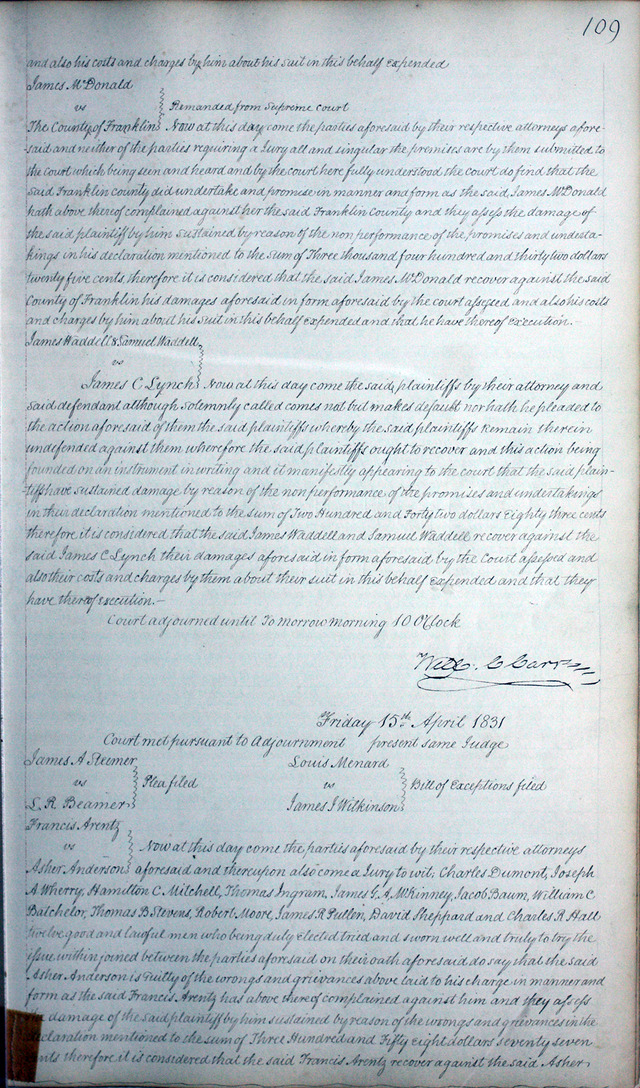 109
and also his costs and charges by him about his suit in this behalf expended
James McDonald
vs
Remanded from Supreme Court
The County of Franklin Now at this day come the parties aforesaid by their respective attorneys afore-
said and neither of the parties requiring a Jury all and singular the premises are by them submitted to
the court which being seen and heard and by the court here fully understood the court do find that the
said Franklin county did undertake and promise in manner and form as the said James McDonald
hath above thereof complained against her the said Franklin County and they assess the damage of
the said plaintiff by him sustained by reason of the non performance of the promises and underta-
kings in his declaration mentioned to the sum of Three thousand four hundred and thirty two dollars
twenty five cents, therefore it is considered that the said James McDonald recover against the said
County of Franklin his damages aforesaid in form aforesaid by the court assessed, and also his costs
and charges by him about his suit in this behalf expended and that he have thereof execution.-
James Waddell & Samuel Waddell
vs
James C Lynch Now at this day come the said plaintiffs by their attorney and
said defendant although solemnly called comes not but makes default nor hath he pleaded to
the action aforesaid of them the said plaintiffs whereby the said plaintiffs remain therein
undefended against them wherefore the said plaintiffs ought to recover and this action being
founded on an instrument in writing and it manifestly appearing to the court that the said plain-
tiffs have sustained damage by reason of the nonperformance of the promises and undertakings
in their declaration mentioned to the sum of Two Hundred and Forty two dollars Eighty three cents
therefore it is considered that the said James Waddell and Samuel Waddell recover against the
said James C Lynch their damages aforesaid in form aforesaid by the Court assessed and
also their costs and charges by them about their suit in this behalf expended and that they
have thereof execution.-
Court adjourned until To morrow morning 10 O'Clock
Will. C Carr
Friday 15th April 1831
Court met pursuant to adjournment present same Judge
James A Steimer
vs
Plea filed
L. R Beamer
Louis Menard
vs
Bill of Exceptions filed
James J Wilkinson
Francis Arentz
vs
Now at this day come the parties aforesaid by their respective attorneys
Asher Anderson aforesaid and thereupon also come a Jury to wit, Charles Dumont, Joseph
A Wherry, Hamilton C Mitchell, Thomas Ingram, James G. A. McKinney, Jacob Baum, William C
Batchelor, Thomas B Stevens, Robert Moore, James R Pullen, David Sheppard and Charles R Hall
twelve good and lawful men who being duly elected tried and sworn well and truly to try the
issue within joined between the parties aforesaid on their oath aforesaid do say that the said
Asher Anderson is guilty of the wrongs and grievances above laid to his charge in manner and
form as the said Francis Arentz has above thereof complained against him and they assess
damage of the said plaintiff by him sustained by reason of the wrongs and grievances in the
declaration mentioned to the sum of Three Hundred and Fifty Eight dollars seventy seven
therefore it is considered that the said Francis Arentz recover against the said Asher